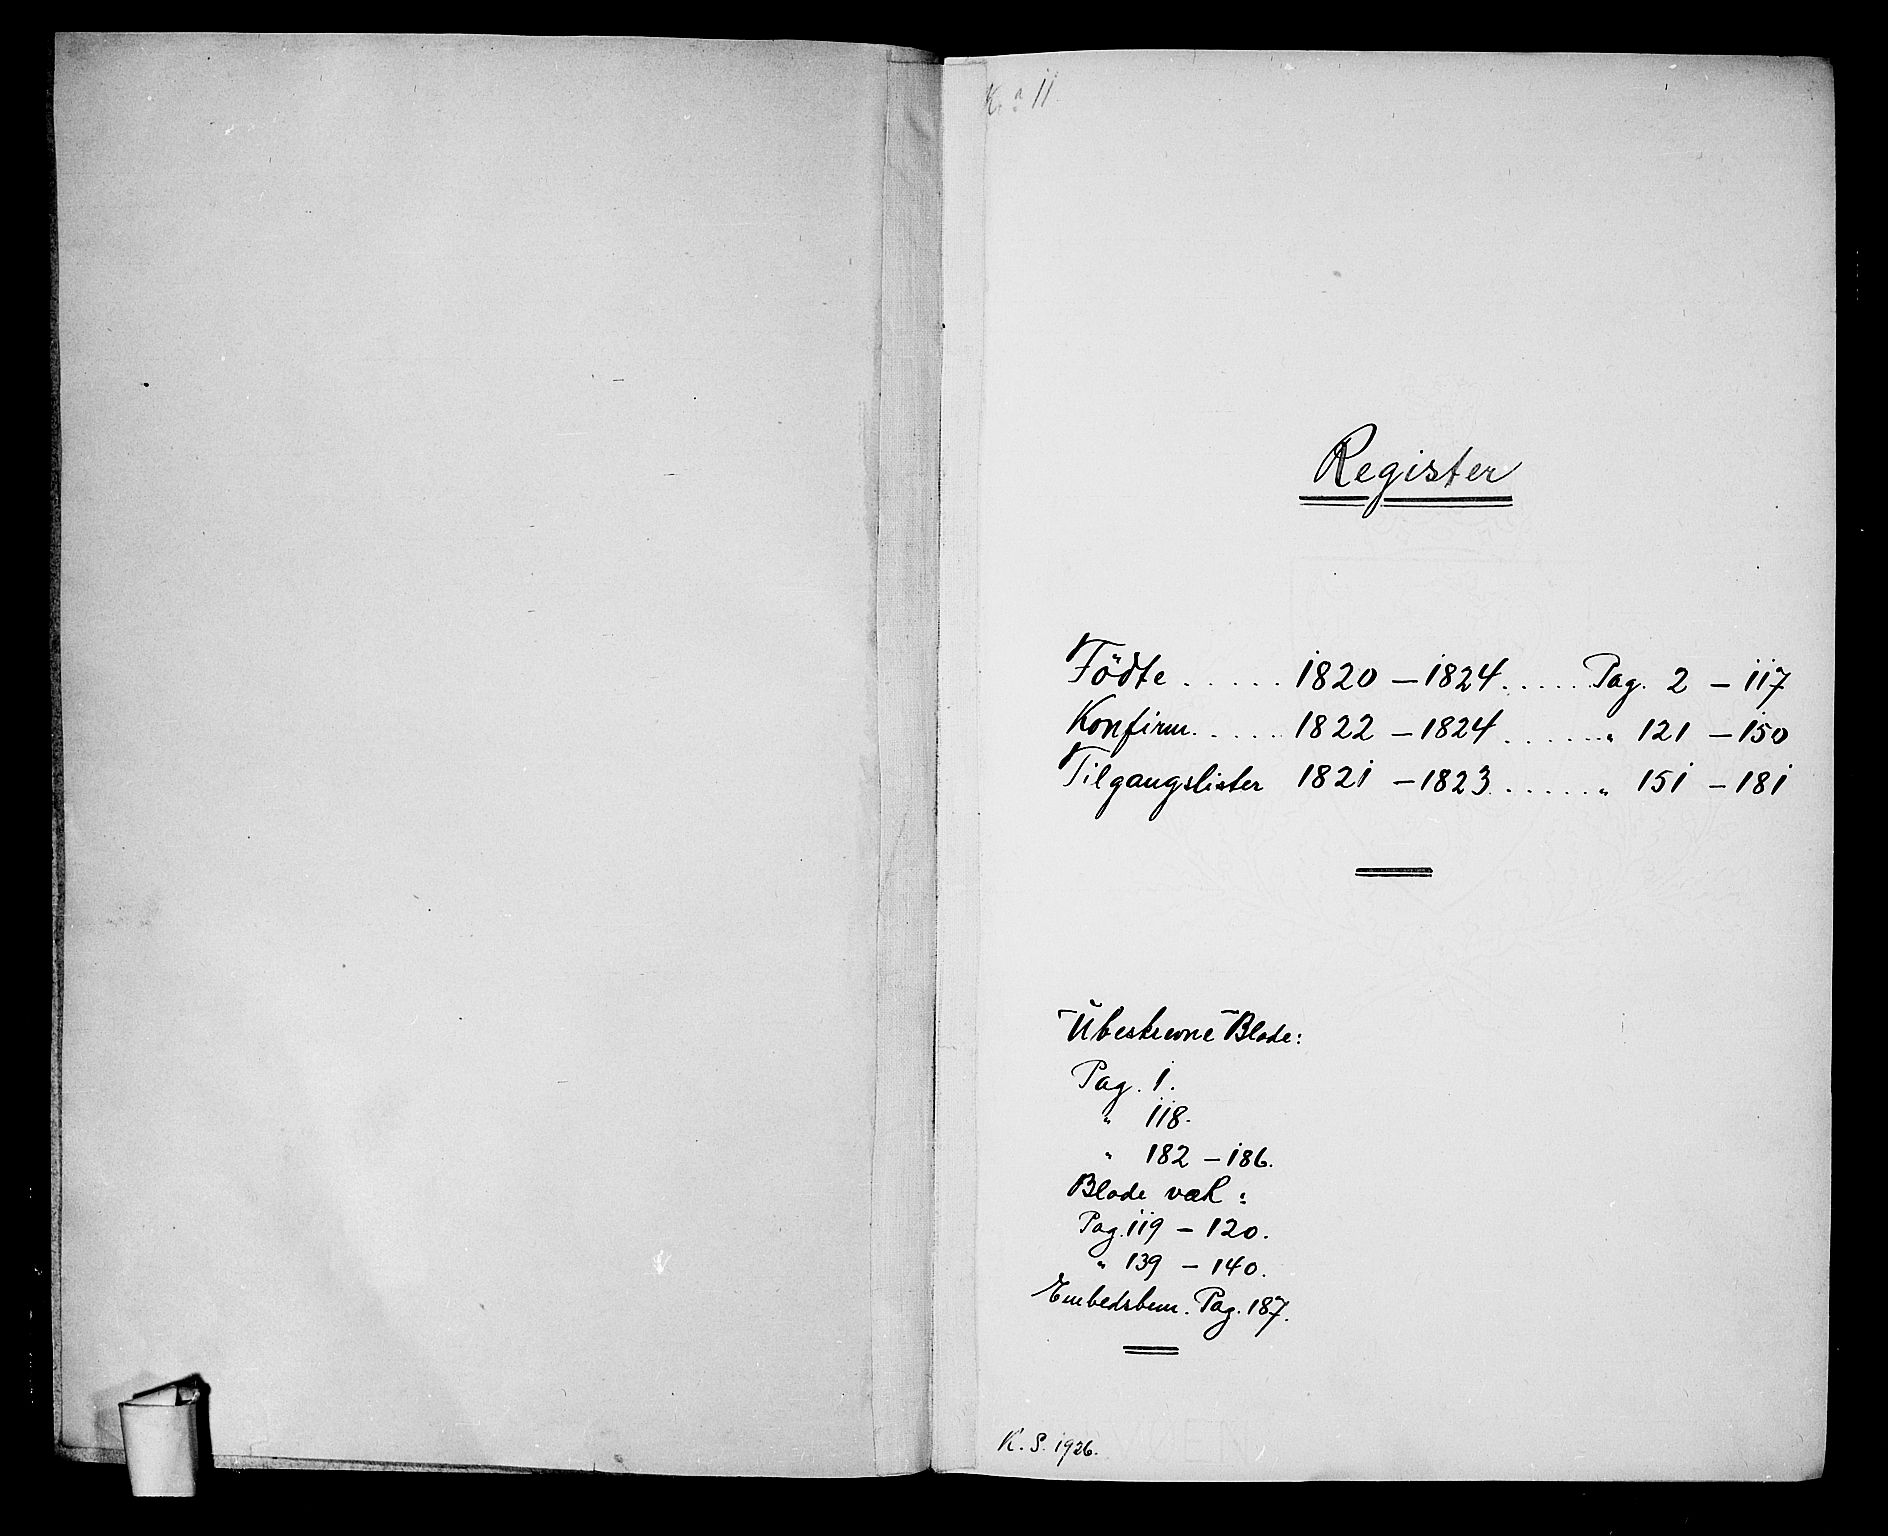 11
Register
Födte . . . . . 1820 – 1824 . . . . . Pag. 2 – 117
Konfirm. . . . . . 1822 – 1824 . . . . . . „ 121 – 150
Tilgangslister 1821 – 1823 . . . . . . „ 151 – 181
Ubeskrevne Blade:
Pag. 1.
„ 118.
„ 182 – 186.
Blade væk :
Pag. 119 – 120.
„ 139 – 140.
Embedsbem. Pag. 187.
K. S. 1926.